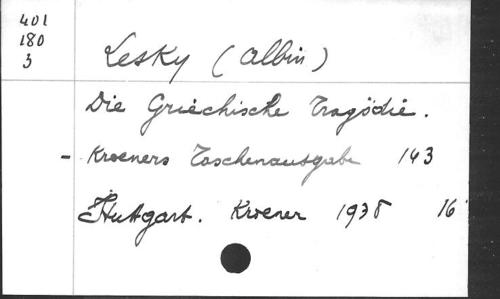 401
180
3
Lesky (Albin)
Die Griechische Tragödie.
- Kroeners Taschenausgabe 143
Stuttgart. Kroener 1938 16